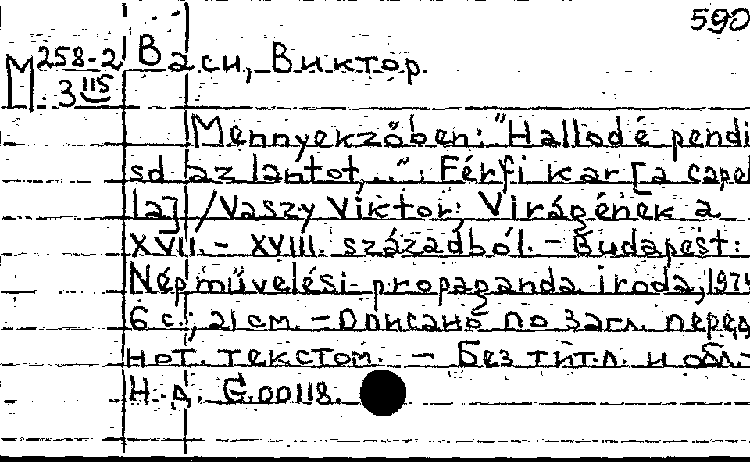 590
М 258-2 Васи, Виктор.
3 115
Mennyekzőben: "Hallod é pendi
sd az lantot,..": Férfi kar [a capel
la] / Vaszy Viktor; Virágének a
XVII.- XVIII. századból. - Budapest:
Népművelési propaganda iroda, 1974
6 с.; 21 см. - Описано по загл. перед
нот. текстом. - Без тит.л. и обл.-
Н.д. G.00118.